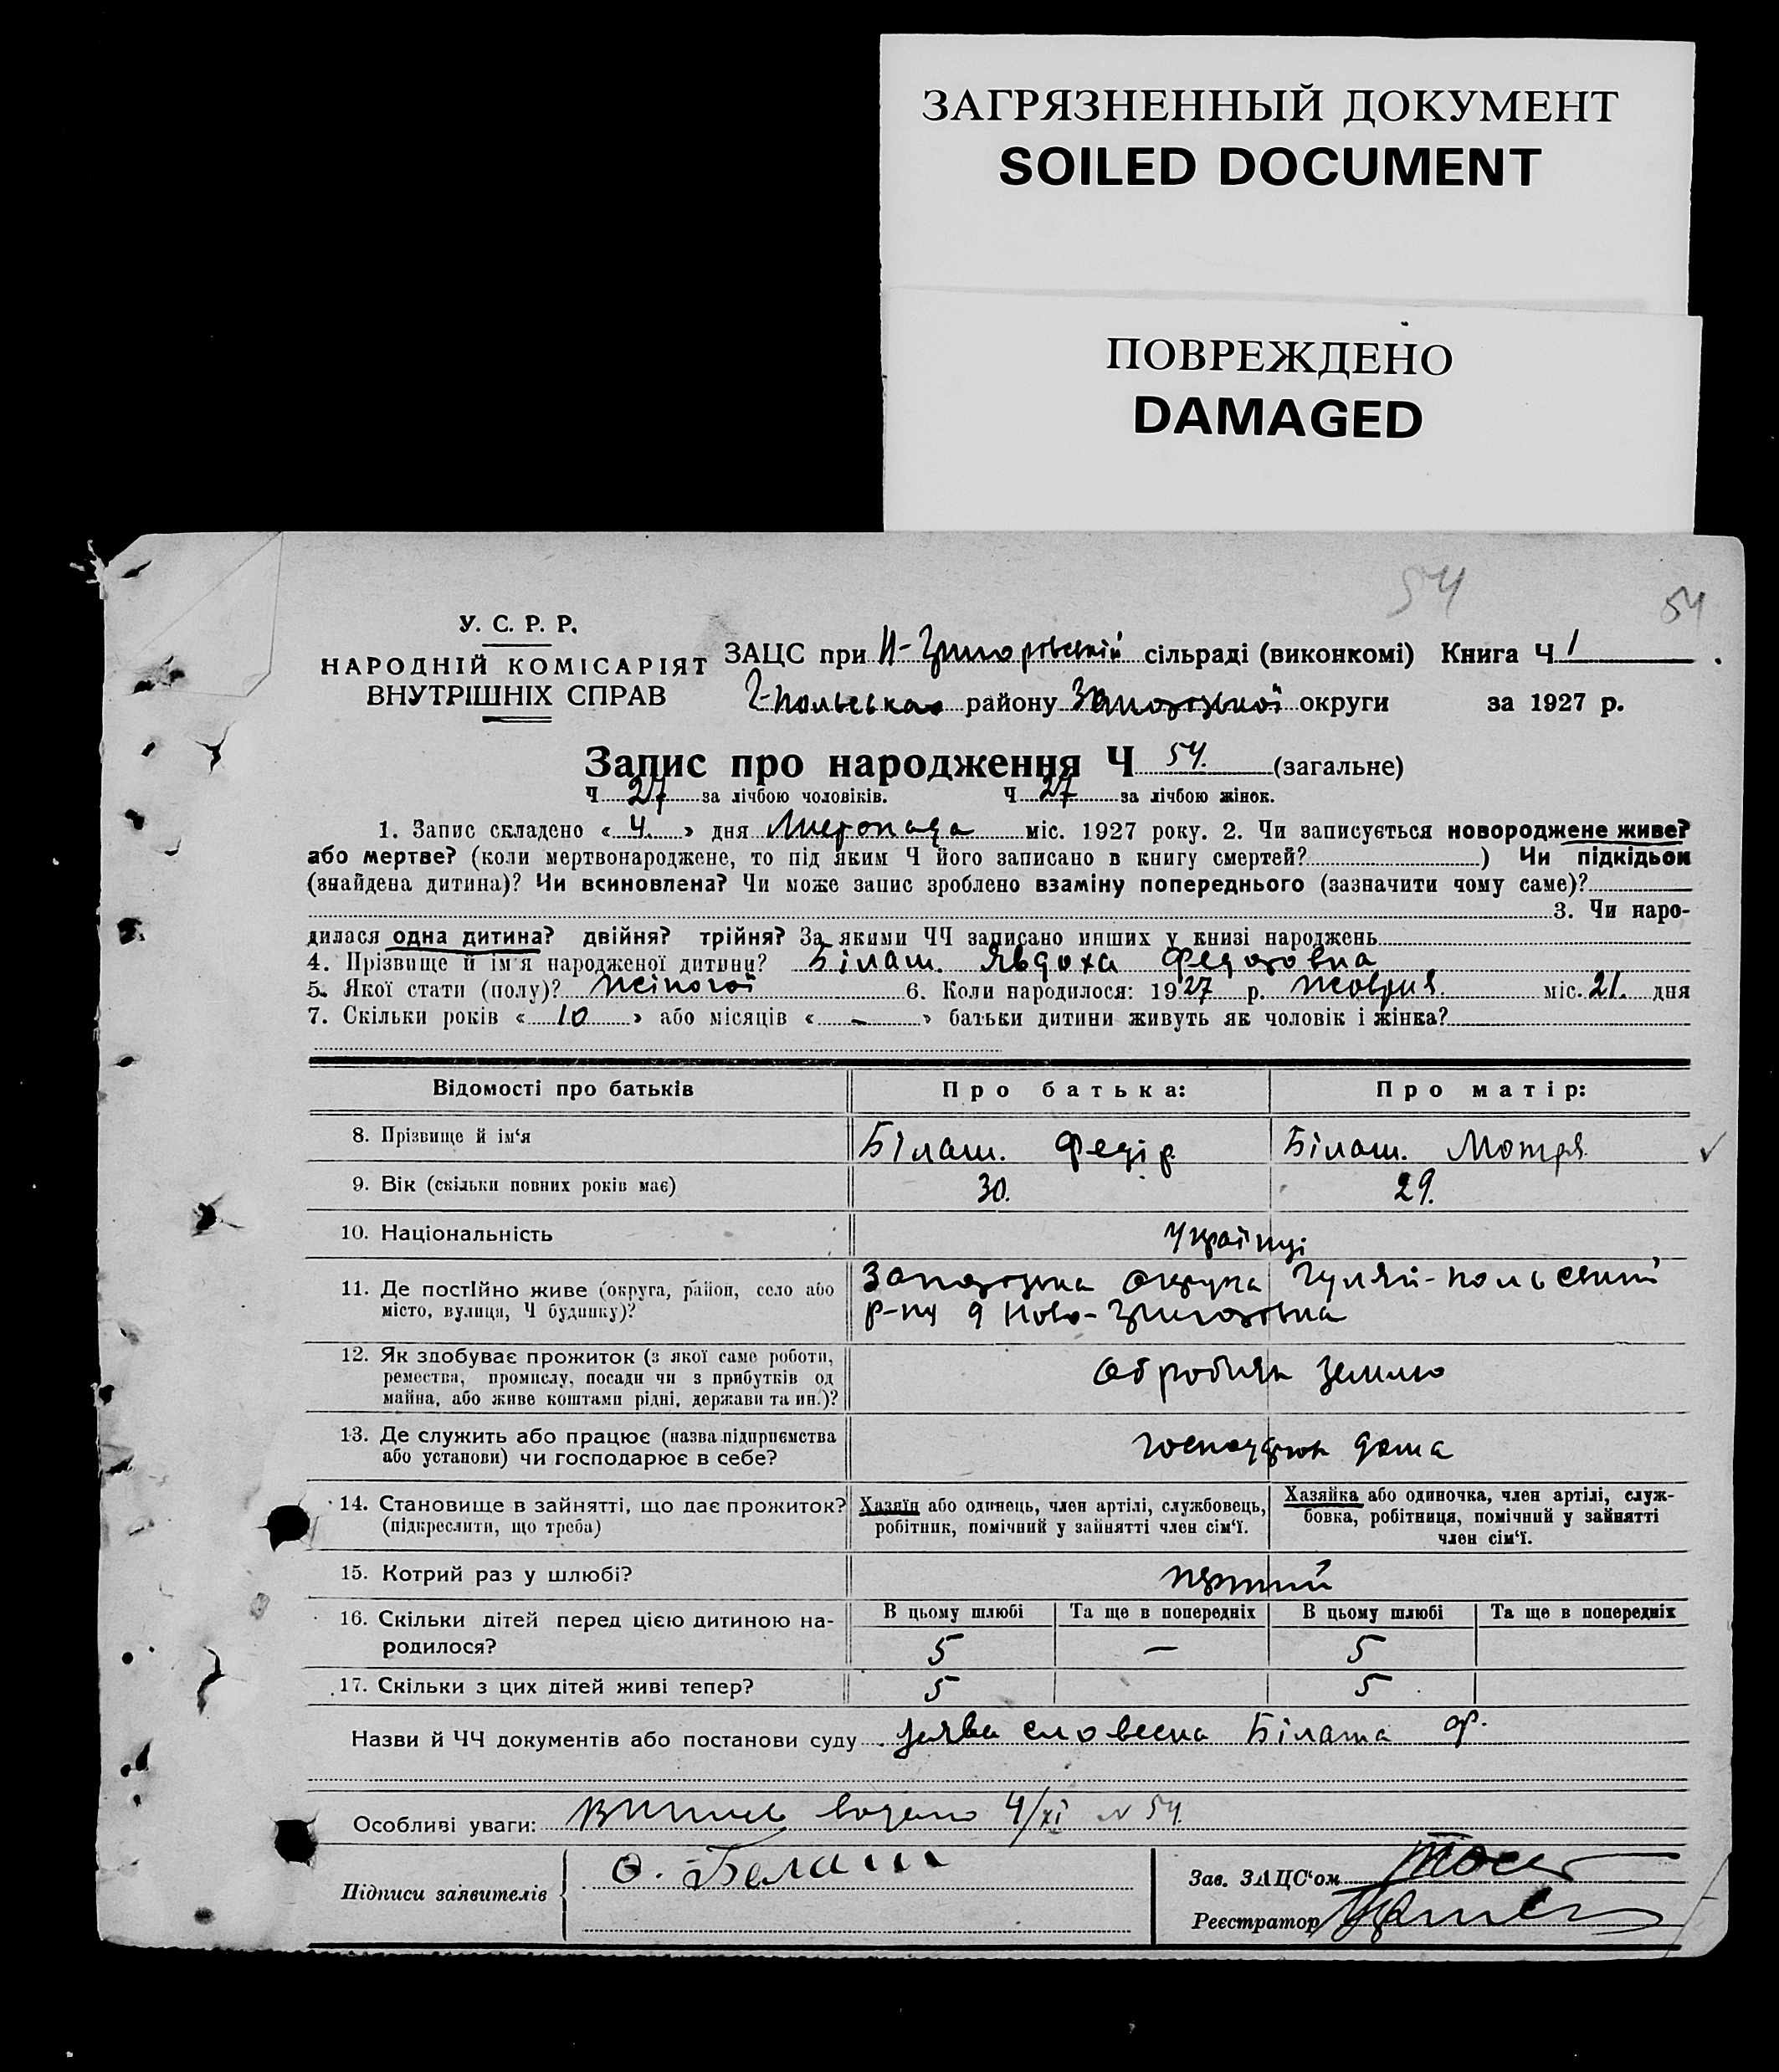 ЗАГРЯЗНЕННЫЙ ДОКУМЕНТ
SOILED DOCUMENT
ПОВРЕЖДЕНО
DAMAGED
54 54
У. С. Р. Р.
НАРОДНІЙ КОМІСАРІЯТ
ВНУТРІШНІХ СПРАВ
ЗАЦС при Н-Григорівській сільраді (виконкомі) Книга Ч 1
Г-Польська району Запорізької округи за 1927 р.
Запис про народження Ч 54. (загальне)
Ч 27 за лічбою чоловіків. Ч 27 за лічбою жінок.
1. Запис складено « 4. » дня Листопада міс. 1927 року. 2. Чи записується новороджене живе?
або мертве? (коли мертвонароджене, то під яким Ч його записано в книгу смертей? ) Чи підкідьок
(знайдена дитина)? Чи всиновлена? Чи може запис зроблено взаміну попереднього (зазначити чому саме)?
3. Чи наро-
дилася одна дитина? двійня? трійня? За якими ЧЧ записано инших у книзі народжень
4. Прізвище й ім'я народженої дитини? Білаш. Явдоха Федоровна
5. Якої стати (полу)? Жіночої 6. Коли народилося: 1927 р. жовтня міс. 21. дня
7. Скільки років « 10 » або місяців « - » батьки дитини живуть як чоловік і жінка?
Відомості про батьків Про батька: Про матір:
8. Прізвище й ім‘я Білаш. Федір Білаш. Мотря
9. Вік (скільки повних років має) 30. 29.
10. Національність Українці
11. Де постійно живе (округа, район, село або Запорізька округа Гуляй-польський
місто, вулиця, Ч будинку)? р-ну Ново-Григоровка
12. Як здобуває прожиток (з якої саме роботи,
ремества, промислу, посади чи з прибутків од
майна, або живе коштами рідні, держави та ин.)? обробляє землю
13. Де служить або працює (назва підприємства
або установи) чи господарює в себе? дома
14. Становище в зайнятті, що дає прожиток? Хазяїн або одинець, член артілі, службовець, Хазяйка або одиночка, член артілі, служ-
(підкреслити, що треба) робітник, помічний у зайнятті член сім‘ї. бовка, робітниця, помічний у зайнятті
член сім‘ї.
15. Котрий раз у шлюбі? перший
16. Скільки дітей перед цією дитиною на- В цьому шлюбі Та ще в попередніх В цьому шлюбі Та ще в попередніх
родилося? 5 — 5
17. Скільки з цих дітей живі тепер? 5 5
Назви й ЧЧ документів або постанови суду заява словесна Білаша Ф.
Особливі уваги: 4/XI № 54.
Підписи заявителів О. Белаш
Зав. ЗАЦС‘ом
Реєстратор